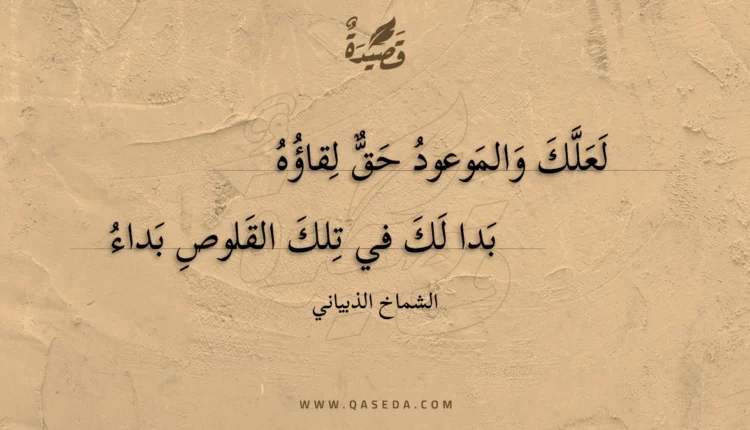 قَصِيدَةٌ
لَعَلَّكَ وَالمَوعودُ حَقٌّ لِقاؤُهُ
بَدا لَكَ في تِلكَ القَلوصِ بَداءُ
الشماخ الذبياني
WWW.QASEDA.COM